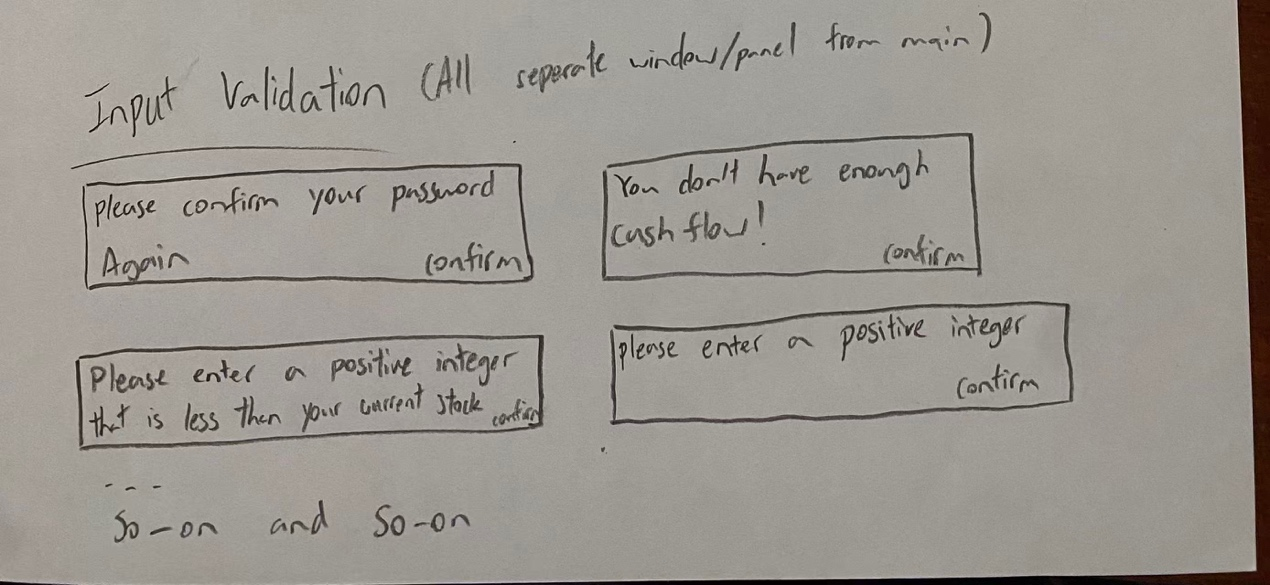 Input Validation (All seperate window/panel from main)
please confirm your password
Again confirm
You don't have enough
cash flow!
confirm
Please enter a positive integer
that is less then your current stock confirm
please enter a positive integer
confirm
---
So-on and So-on